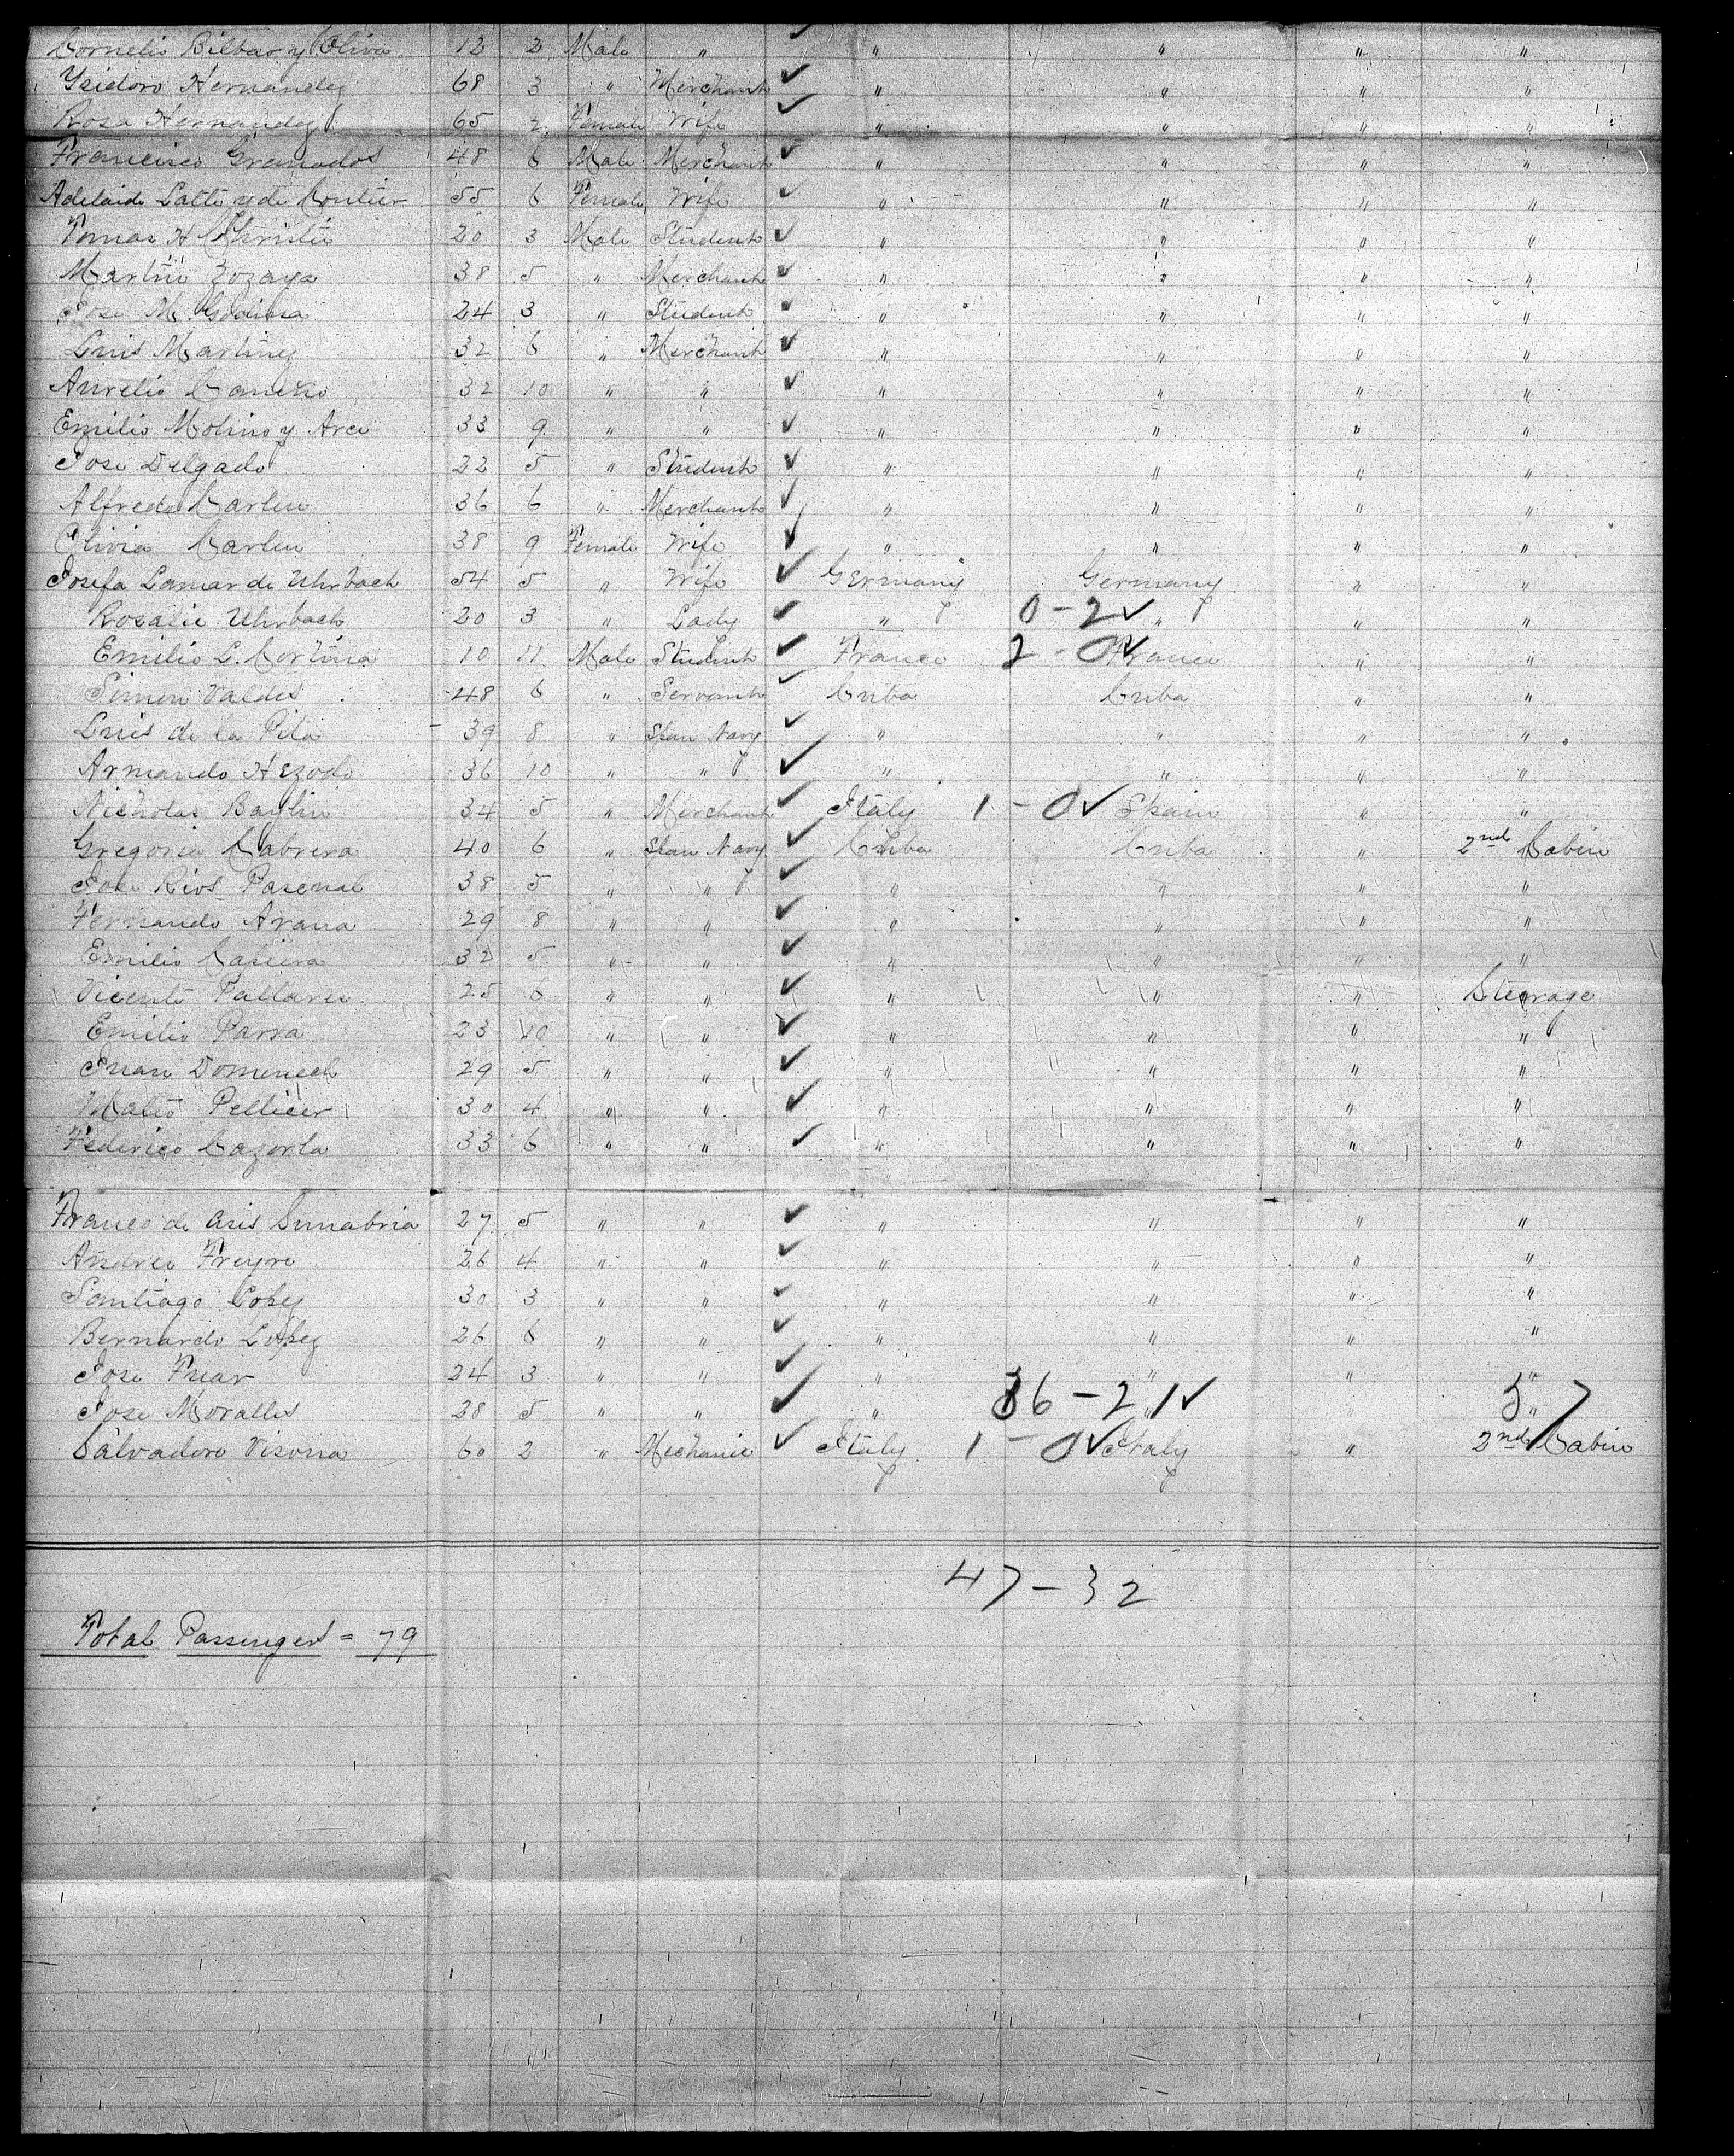 Cornelio Bilbao y Oliva 12 2 Male " " " " "
Ysidoro Hernandez 68 3 " Merchant ✓ " " " "
Rosa Hernandez 65 2 Female Wife ✓ " " " "
Francisco Granados 48 6 Male Merchant ✓ " " " "
Adelaide Latte y de 55 6 Female Wife ✓ " " " "
Tomas H Christie 20 3 Male Student ✓ " " " "
Martin Zozaya 38 5 " Merchant ✓ " " " "
Jose M. Godina 24 3 " Student ✓ " " " "
Luis Martinez 32 6 " Merchant ✓ " " " "
Aurelio 32 10 " " ✓ " " " "
Emilio Molino y Arce 33 9 " " ✓ " " " "
Jose Delgado 22 5 " Student ✓ " " " "
Alfredo Carleu 36 6 " Merchant ✓ " " " "
Olivia Carleu 38 9 Female Wife ✓ " " " "
Josefa Lamar de Uhrbach 54 5 " Wife ✓ Germany Germany " "
Rosalie Uhrbach 20 3 " Lady ✓ " 0 - 2 ✓ " " "
Emilio L. Cortina 10 11 Male Student ✓ France 2 - 0 ✓ France " "
Simon Valdes 48 6 " Servant ✓ Cuba Cuba " "
Luis de la Pila 39 8 " Span Navy ✓ " " " "
Armando Hezodo 36 10 " " ✓ " " " "
Nicholas Baylin 34 5 " Merchant ✓ Italy 1 - 0 ✓ Spain " "
Gregoria Cabrera 40 6 " Span Navy ✓ Cuba Cuba " 2nd Cabin
Jose Rios Pascual 38 5 " " ✓ " " " "
Fernando Arana 29 8 " " ✓ " " " "
Emilio 32 5 " " ✓ " " " "
Vicente Pallares 25 6 " " ✓ " " " Steerage
Emilio Parra 23 10 " " ✓ " " " "
Juan Domenech 29 5 " " ✓ " " " "
Mateo Pellicer 30 4 " " ✓ " " " "
Federico Cazorla 33 6 " " ✓ " " " "
Franco de Asis Sunabria 27 5 " " ✓ " " " "
Andres Freyre 26 4 " " ✓ " " " "
Santiago Lopez 30 3 " " ✓ " " " "
Bernardo Lopez 26 6 " " ✓ " " " "
Jose Friar 24 3 " " ✓ " " " "
Jose Moralles 28 5 " " ✓ " 36 - 21 ✓ " " 57 "
Salvadore Visona 60 2 " Mechanic ✓ Italy 1 - 0 ✓ Italy " 2nd Cabin
47 - 32
Total Passengers = 79